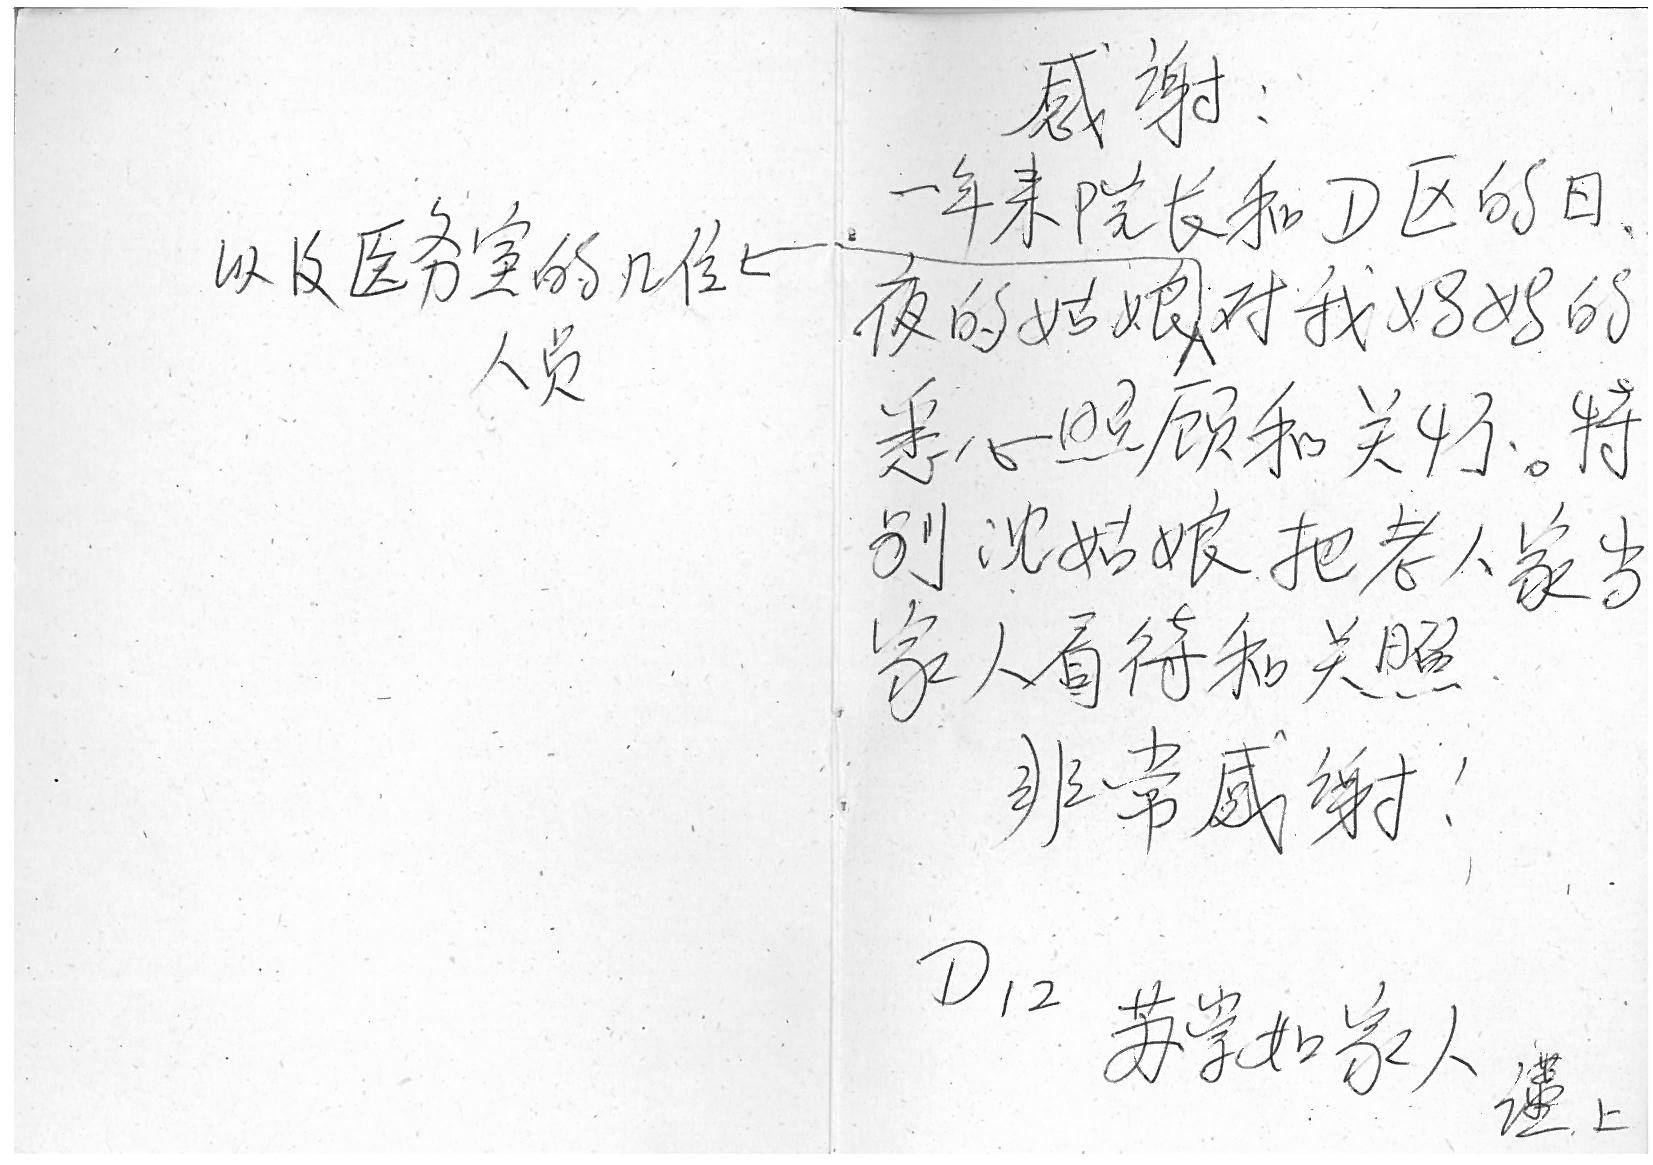 感谢：
一年来院长和D区的日、
夜的姑娘对我妈妈的
悉心照顾和关怀。特
别沈姑娘把老人家当
家人看待和关照
非常感谢！
D12
苏掌如家人
谨上
以及医务室的几位
人员